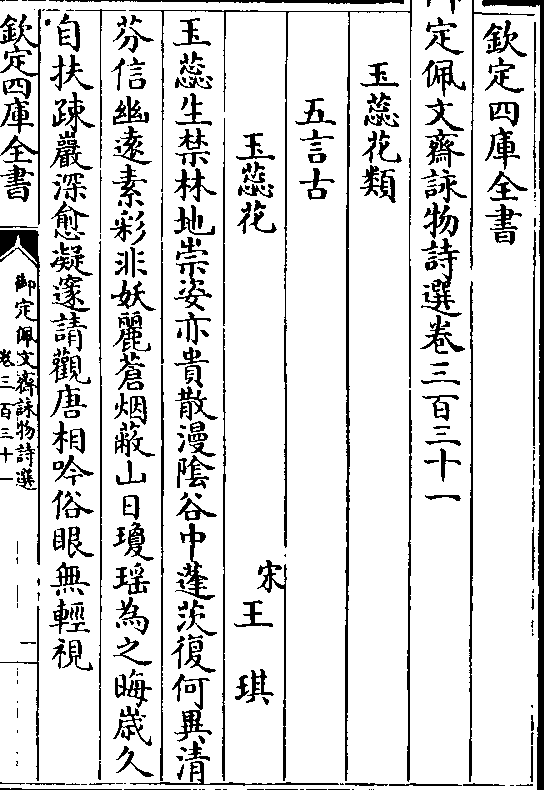 欽定四庫全書
御定佩文齋詠物詩選卷三百三十一
玉蕊花類
五言古
玉蕊花
宋王琪
玉蕊生禁林地崇姿亦貴散漫陰谷中蓬茨復何異清
芬信幽遠素彩非妖麗蒼烟蔽山日瓊瑤為之晦歲久
自扶疎巖深愈凝邃請觀唐相吟俗眼無輕視
欽定四庫全書
御定佩文齋詠物詩選
卷三百三十一
一